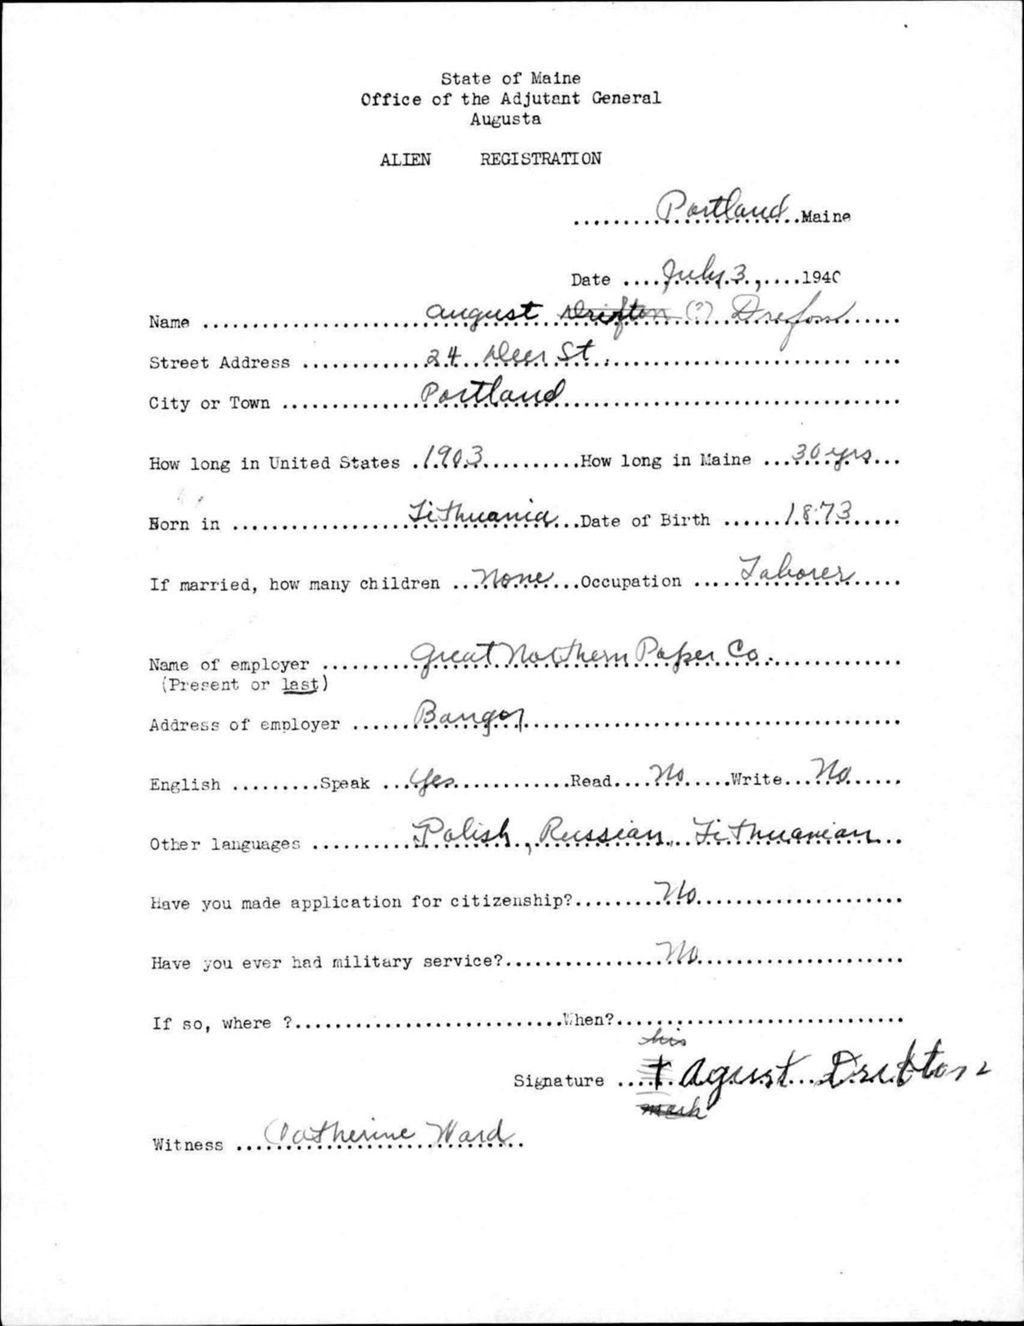 State of Maine
Office of the Adjutant General
Augusta
ALIEN REGISTRATION
.........Portland..Maine
Date ....July 3,....1940
Name .......................August Drifton (?)
Street Address ..............24 Deer St. .... ....
City or Town ..............Portland..............................
How long in United States .1903..........How long in Maine ...30 yrs...
Born in ..................Lithuania...Date of Birth ......1873.....
If married, how many children ..None...Occupation .....Laborer.....
Name of employer .........Great Northern Paper Co...............
(Present or last)
Address of employer ......Bangor......................................
English .........Speak ...Yes.............Read....No.....Write...No......
Other languages ..........Polish, Russian, Lithuanian...
Have you made application for citizenship?.........No.....................
Have you ever had military service?................No.....................
If so, where ?...........................When?.............................
his
Signature ....+ Agust
mark
Witness ...Catherine Ward..